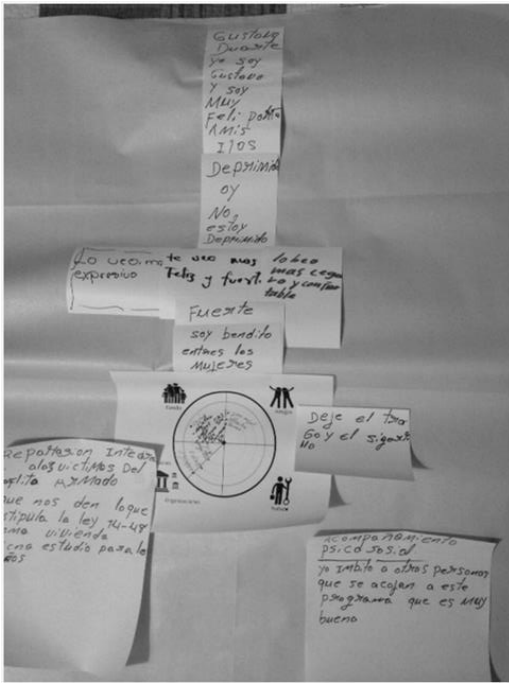 Gustavo
Duarte
yo soy
Gustavo
y soy
Muy
Feli
A Mis
IJOS
Deprimid
oy
No,
estoy
Deprimido
Lo veo
expresivo
te veo mas
Feliz y fuert.
lo beo
mas cegu
ro y confor
table
Fuerte
soy bendito
entres las
Mujeres
familia
amigos
organizaciones
trabajo
Deje el tra
Go y el sigarri
llo
Repattason Integra
a los victimos Del
nflito Armado
que nos den loque
stipula la ley 14-48
omo vivienda
estudio para lo
Acompañamiento
psicososial
yo Imbito a otros personas
que se acojan a este
programa que es muy
bueno